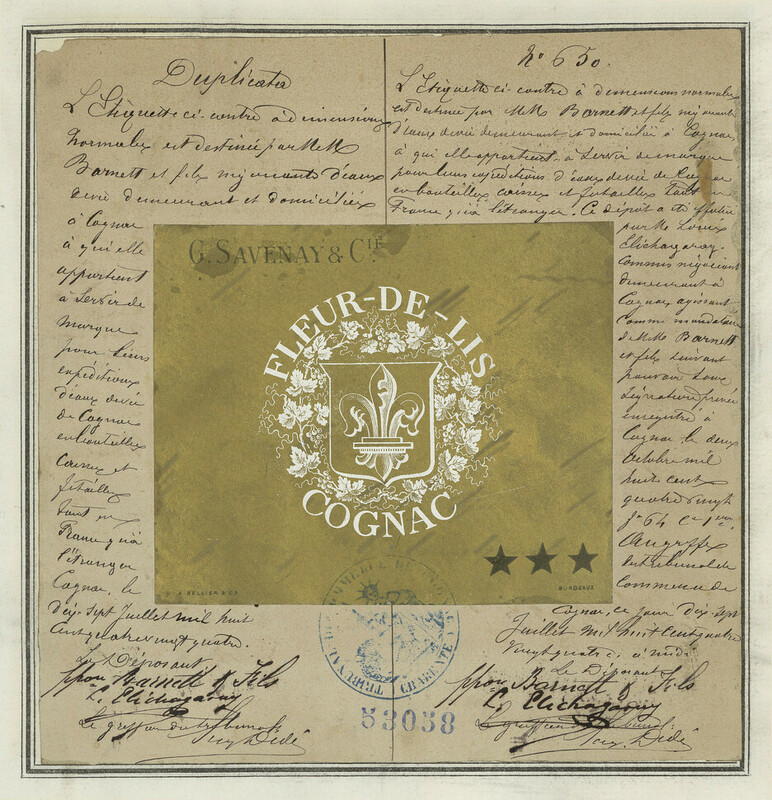 Duplicata
L'Etiquette ci-contre à dimensions
normales est destinée par MM
Barnett et fils négociants d'eaux
devie demeurant et domiciliés
à Cognac
à qui elle
appartient
à Servir de
marque
pour leurs
expéditions
d'eaux devie
de Cognac
en bouteilles
Caisses et
futailles
tant en
France qu'à
l'étranger
Cognac, le
Dix-Sept Juillet mil huit
Cent quatre vingt quatre.
Le Déposant
ppon Barnett & Fils
L. Elichagaray
Le greffier du tribunal
No 650.
L'Etiquette ci-contre à dimensions normales
est destinée par MM Barnett et fils négociants
d'eaux devie demeurant et domiciliés à Cognac,
à qui elle appartient à Servir de marque
pour leurs expéditions d'eaux devie de Cognac
en bouteilles caisses et futailles tant en
France qu'à l'étranger. Ce dépôt a été effectué
par M. Louis
Elichagaray
Commis négociant
demeurant à
Cognac agissant
Comme mandataire
de MM Barnett
et fils suivant
pouvoir sous
Signature privée
enregistré à
Cognac le deux
Octobre mil
huit cent
quatre vingt
fo 64 Ce 1er
Au greffe
du tribunal de
Commerce de
Cognac, ce jour Dix-Sept
Juillet mil huit cent quatre
vingt quatre, à midi
Le Déposant
ppon Barnett & Fils
L. Elichagaray
Le greffier du tribunal
G. SAVENAY & CIE.
FLEUR-DE-LIS
COGNAC
BELLIER & CO
BORDEAUX
TRIBUNAL DE COMMERCE DE COGNAC
CHARENTE
53058